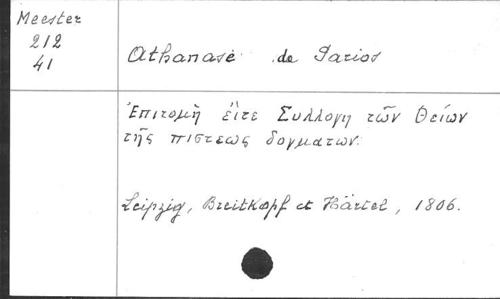 Meester
212
41
Athanase de Parios
Ἐπιτομὴ εἴτε Συλλογη τῶν Θείων
τῆς πιστεως δογματων.
Leipzig, Breitkopf et Härtel, 1806.